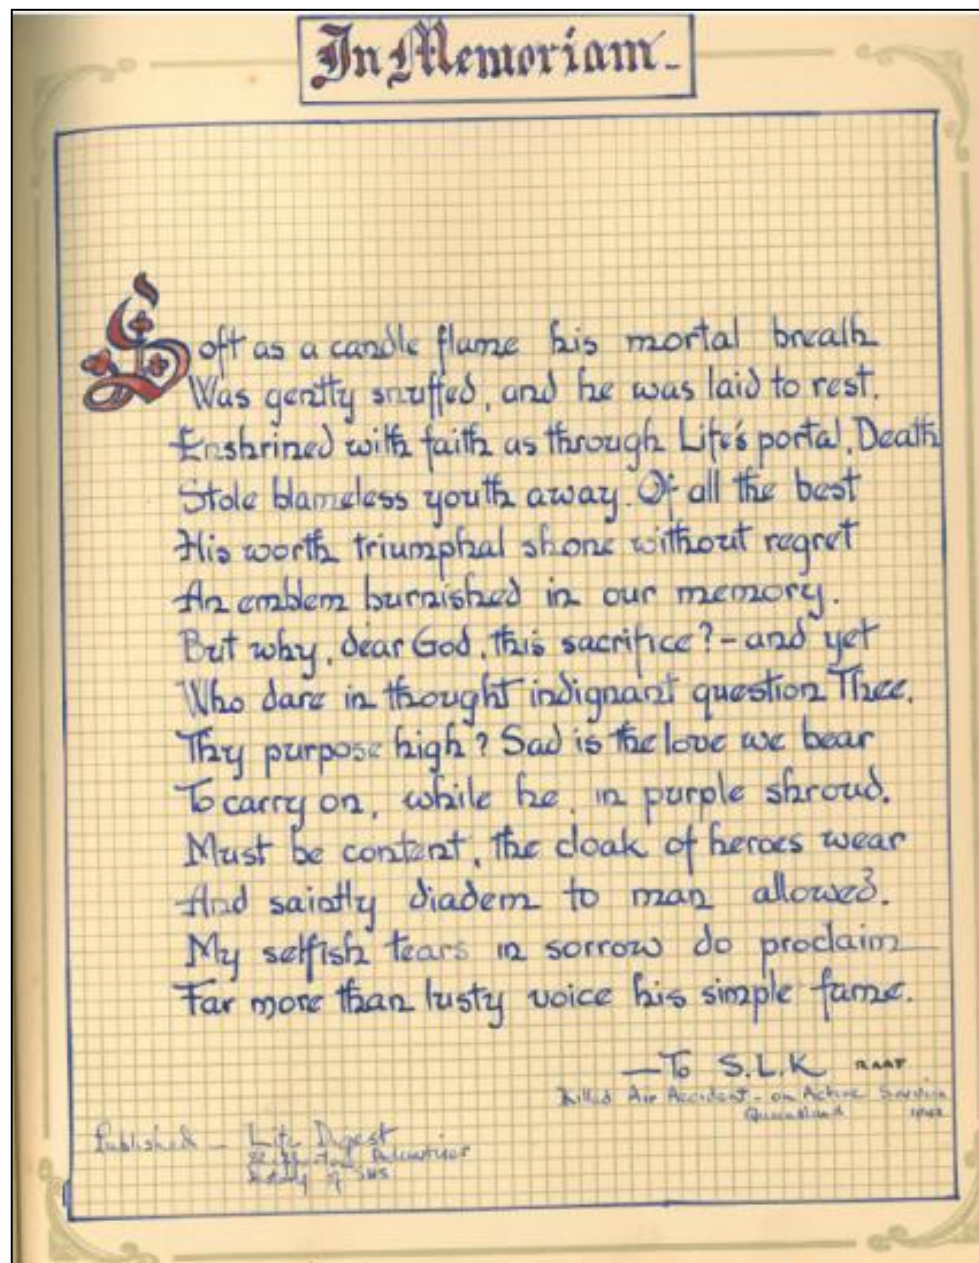 In Memoriam -
Soft as a candle flame his mortal breath
Was gently snuffed, and he was laid to rest.
Enshrined with faith as through Life's portal, Death
Stole blameless youth away. Of all the best
His worth triumphal shone without regret
An emblem burnished in our memory.
But why, dear God, this sacrifice? - and yet
Who dare in thought indignant question Thee,
Thy purpose high? Sad is the love we bear
To carry on, while he, in purple shroud,
Must be content, the cloak of heroes wear
And saintly diadem to man allowed.
My selfish tears in sorrow do proclaim
Far more than lusty voice his simple fame.
— To S.L.K RAAF
Killed Air Accident - on Active Service
Queensland
Published - Life Digest
Advertiser
of SHS